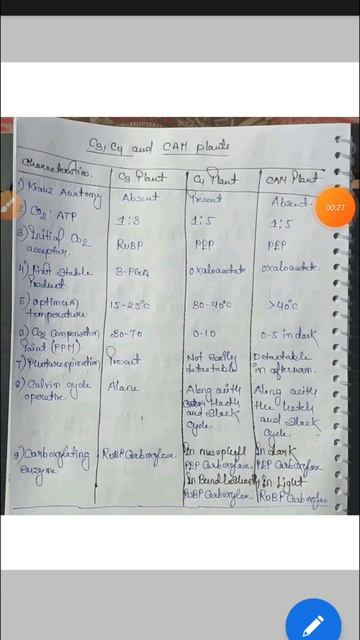 C3, C4 and CAM plants
Characteristics. C3 Plant C4 Plant CAM Plant
1) Kranz Anatomy Absent Present Absent
2) CO2 : ATP 1:3 1:5 1:5
3) Initial CO2 acceptor. RuBP PEP PEP
4) First Stable Product 3-PGA oxaloacetate. oxaloacetate.
5) optimum temperature 15-25°C 30-40°C >40°C
6) CO2 Compensation Point (PPM) 30-70 0-10 0-5 in dark
7) Photorespiration Present Not easily detectable Detectable in afternoon.
8) Calvin cycle operative Alone Along with Hatch and Slack Cycle. Along with the Hatch and Slack Cycle
9) Carboxylating Enzyme RuBP Carboxylase In mesophyll PEP Carboxylase In Bundle Sheath RuBP Carboxylase In dark PEP Carboxylase In Light RuBP Carboxylase
00:27